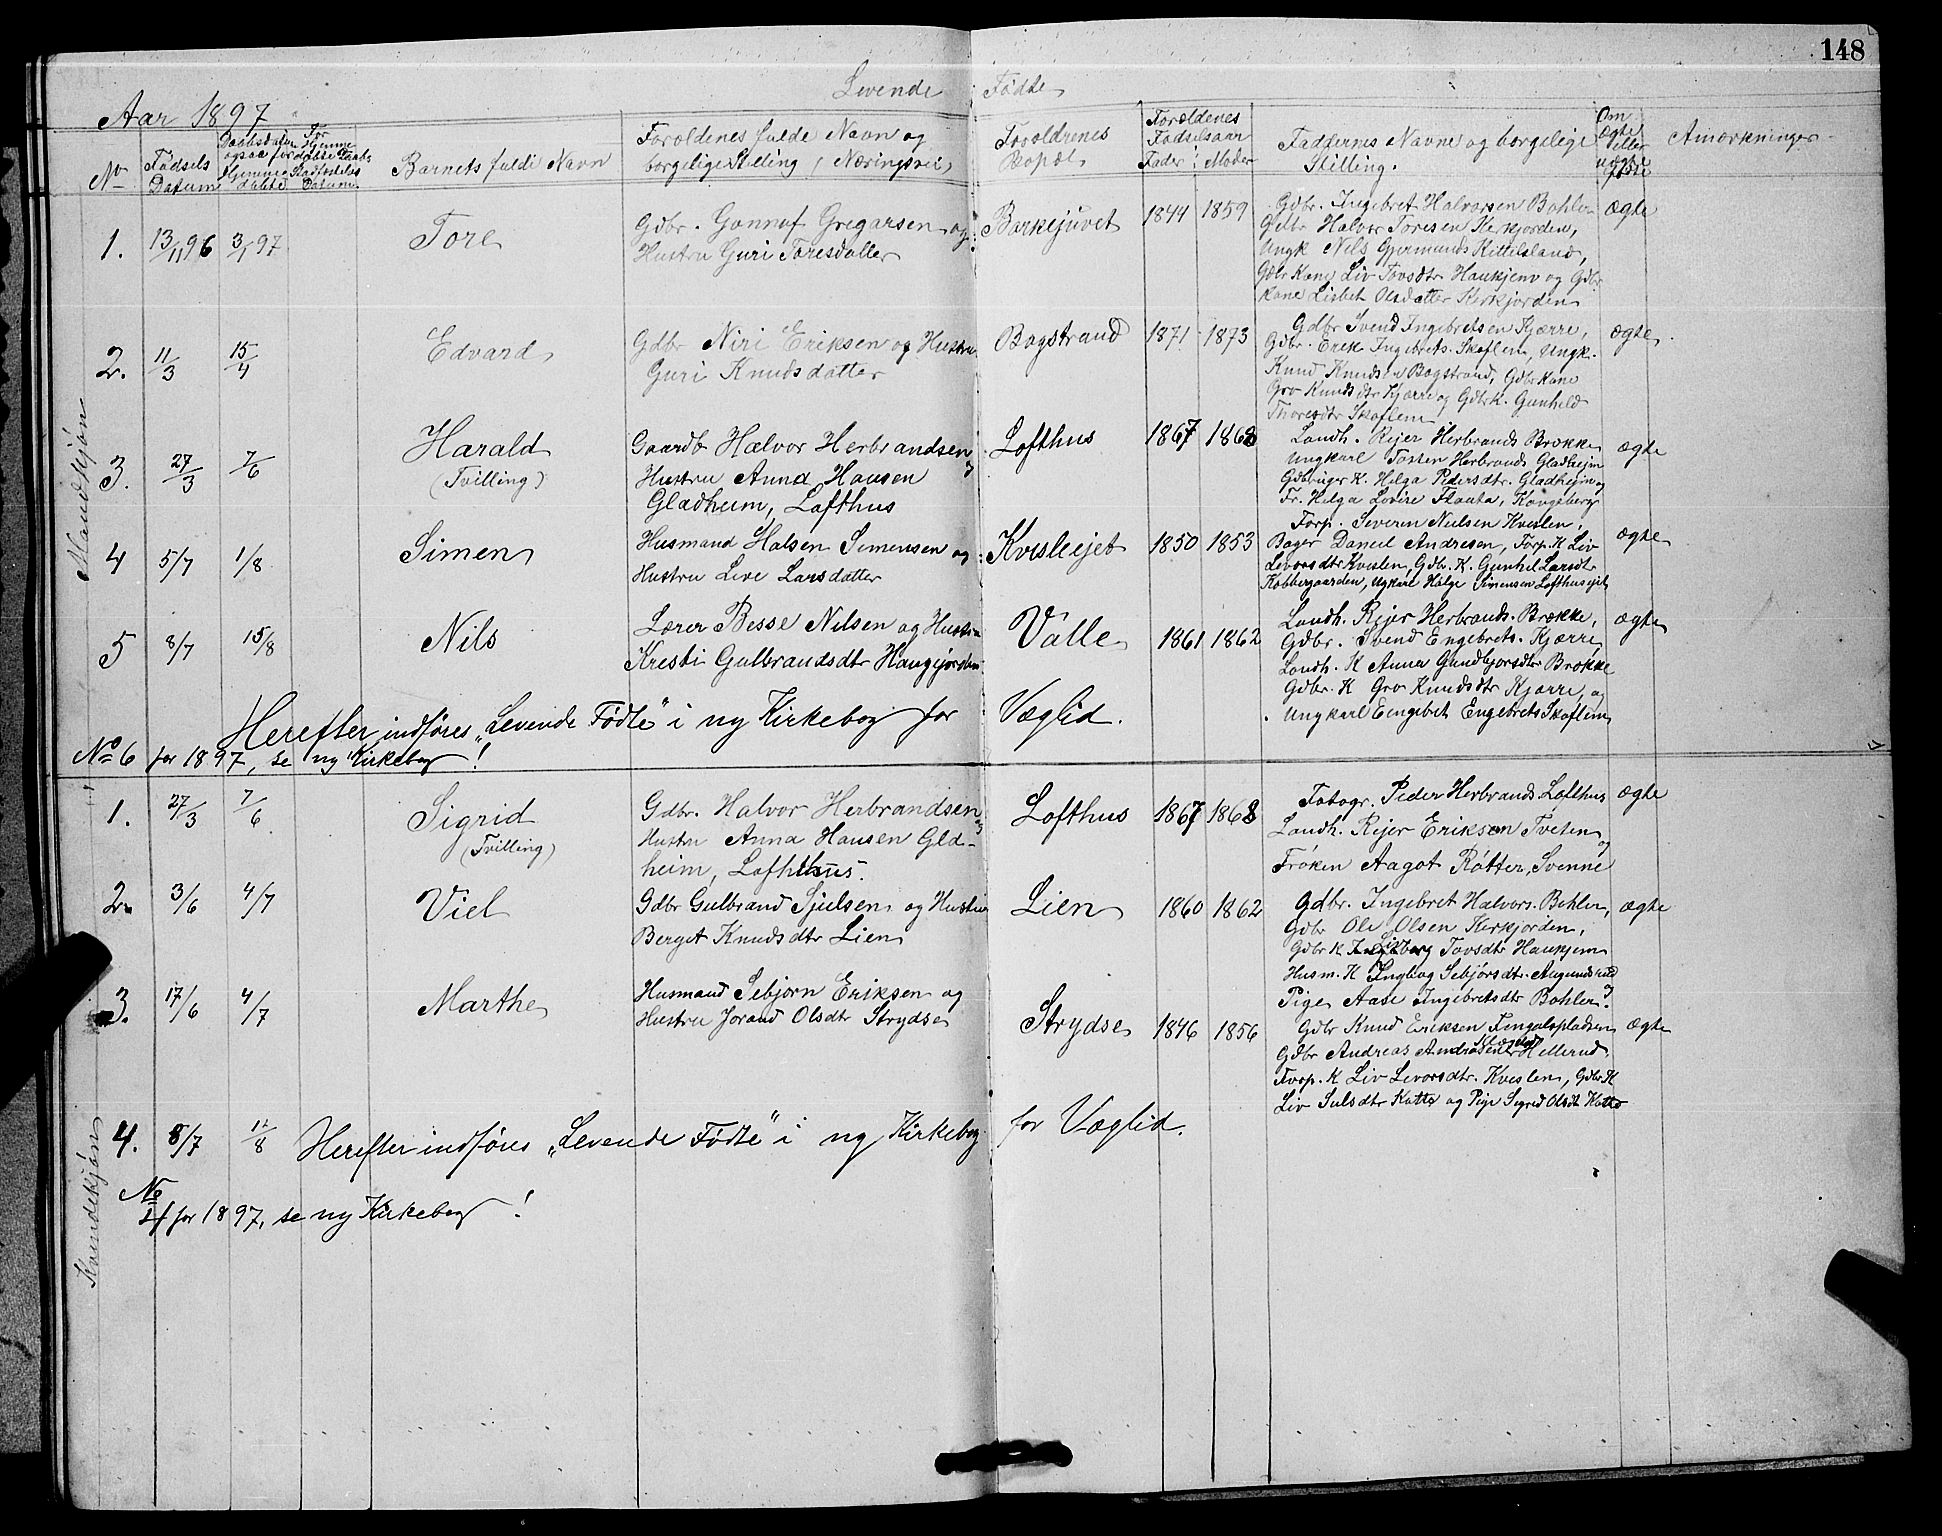 148
Levende Fødte
Aar 1897
No
Fødsels Datum
Daabsdatum ogsaa for hjemmedøbte
For Hjemmedøbte Daabs Stadfæstelses Datum
Barnets fulde Navn
Foræld­enes fulde Navn og
borgelige Stilling / Næringsvei
Forældrenes Bopæl
Forældenes Fødselsaar
Fader Moder
Faddernes Navne og borgelige Stilling.
Om ægte eller uægte født
Anmærkninger
Mandkjøn
1. 13/11 96 3/1 97 Tore
Gdbr. Gunnuf Gregarsen og
Hustru Guri Toresdatter
Barkejuvet 1844 1859
Gdbr. Ingebret Halvorsen Bøhler
Gdbr Halvor Toresen Kerkjorden,
Ungk Nils Gjermunds Kittilsland,
Gdbr Kone Liv Tovsdtr Haukjem og Gdbr
kone Lisbet Olsdatter Kerkjorden
ægte
2. 11/3 15/4 Edvard
Gdbr Niri Eriksen og Hustru
Guri Knudsdatter
Bagstrand 1871 1873
Gdbr Svend Ingebretsen Kjærre,
Gdbr. Erik Ingebrets. Skaflem, Ungk.
Knud Knudsen Bagstrand, Gdbr Kone
Gro Knudsdtr Kjærre og Gdbrk. Gunhild
Thoresdtr Skaflem
ægte.
3. 27/3 7/6 Harald
(Tvilling)
Gaardb Halvor Herbrandsen og
Hustru Anna Hansen
Gladheim, Lofthus
Lofthus 1867 1868
Landh. Rejer Herbrands Brøkke
Ungkarl Tosten Herbrands Gladheim
Gdbruger K. Helga Pedersdtr. Gladheim og
Fr. Helga Lovise Flaata, Kongsberg
ægte
4 5/7 1/8 Simen
Husmand Halsen Simensen og
Hustru Live Larsdatter
Kvisleejet 1850 1853
Forp. Severin Nielsen Kvislen,
Bager Daniel Andresen, Forp. K Liv
Levorsdtr Kvislen, Gdbr. K. Gunhil Larsdtr
Kobbergaarden, Ugkarl Helge Simensen Lofthusejet
ægte
5 8/7 15/8 Nils
Lærer Besse Nilsen og Hustru
Kresti Gulbrandsdtr Haugjorden
Valle 1861 1862
Landh. Rejer Herbrands. Brøkke,
Gdbr. Svend Engebrets. Kjærre,
Landh. K Anna Gundbjorsdtr Brøkke
Gdbr. K Gro Knudsdtr Kjærre, og
Ungkarl Eengebet Engebrets Skaflem
ægte
Herefter indføres „Levende Fødte" i ny Kirkebog for Væglid.
No 6 for 1897, se ny Kirkebog!
Kvindekjøn
1. 27/3 7/6 Sigrid
(Tvilling)
Gdbr. Halvor Herbrandsen og
Hustru Anna Hansen Glad-
heim, Lofthus.
Lofthus 1867 1868
Fotogr. Peder Herbrands Lofthus
Landh. Rejer Eriksen Tveten og
Frøken Aagot Røtter, Svenne
ægte
2. 3/6 4/7 Viel
Gdbr Gulbrand Sjulsen og Hustru
Berget Knudsdtr Lien
Lien 1860 1862
Gdbr. Ingebret Halvors. Bøhler,
Gdbr Ole Olsen Kerkjorden,
Gdbr K Liv Tovsdtr Haukjem
Husm. K Ingbog Sebjørsdtr. Aagundsrud
Pige Aase Ingebretsdtr Bøhler.
ægte
3. 17/6 4/7 Marthe
Husmand Sebjørn Eriksen og
Hustru Jorand Olsdtr Strydse
Strydse 1846 1856
Gdbr Knud Eriksen Fengalspladsen
Gdbr Andreas Andrasen Hellerud,
Forp. K Liv Levorsdtr. Kvislen, Gdbr K
Liv Sulsdtr Kutte og Pige Sigrid Olsdt Kutte
ægte
4. 8/7 12/8 Herefter indføres „Levende Fødte" i ny Kirkebog for Væglid.
No 4 for 1897, se ny Kirkebog!